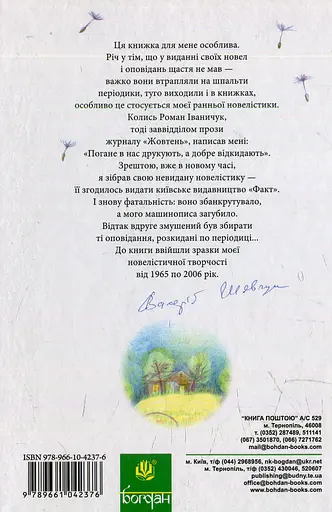 Ця книжка для мене особлива.
Річ у тім, що у виданні своїх новел
і оповідань щастя не мав —
важко вони втрапляли на шпальти
періодики, туго виходили і в книжках,
особливо це стосується моєї ранньої новелістики.
Колись Роман Іваничук,
тоді заввідділом прози
журналу «Жовтень», написав мені:
«Погане в нас друкують, а добре відкидають».
Зрештою, вже в новому часі,
я зібрав свою невидану новелістику —
її згодилось видати київське видавництво «Факт».
І знову фатальність: воно збанкрутувало,
а мого машинописа загубило.
Відтак вдруге змушений був збирати
ті оповідання, розкидані по періодиці...
До книги ввійшли зразки моєї
новелістичної творчості
від 1965 до 2006 рік.
Валерій Шевчук
"КНИГА ПОШТОЮ" А/С 529
м. Тернопіль, 46008
т. (0352) 287489, 511141
(067) 3501870, (066) 7271762
mail@bohdan-books.com
м. Київ, т/ф (044) 2968956, nk-bogdan@ukr.net
м. Тернопіль, т/ф (0352) 430046, 520607
publishing@budny.te.ua
office@bohdan-books.com
www.bohdan-books.com
ISBN 978-966-10-4237-6
9 789661 042376
богдан